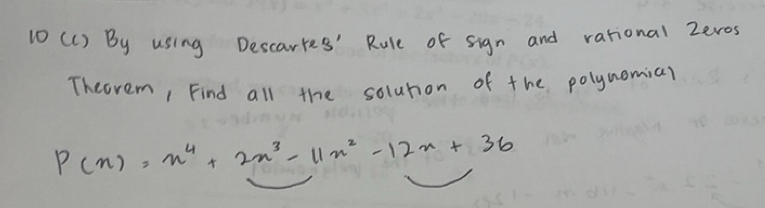 10 (c) By using Descartes' Rule of sign and rational Zeros
Theorem, Find all the solution of the polynomial
P(x) = x⁴ + 2x³ - 11x² - 12x + 36